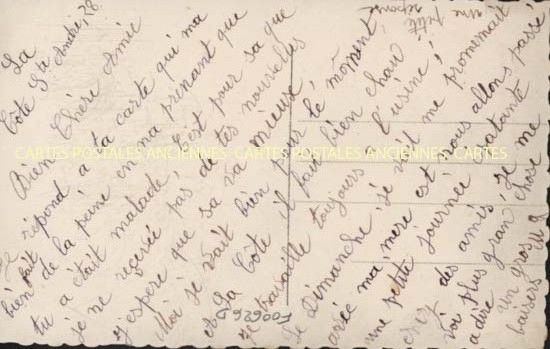 La
Côte St André, 28.
Chère Amie
Bien
Je répond a ta carte qui ma
bien fait de la peine en ma prenant que
tu a était malade, c'est pour sa que
je ne recevée pas de tes nouvelles
j'espère que sa va mieuse.
Moi je vait bien pour le moment
et La Côte il fait bien chau
Je travaille toujours a l'usine,
Le Dimanche je vait me promenait
avec ma mère est nous allons passé
une petite journée épatante
chez des amis, Je me
voi plus gran chose
a dire Un gros
baisers
une petite
réponse
CARTES POSTALES ANCIENNES CARTES POSTALES ANCIENNES CARTES POSTALES ANCIENNES
F006296D